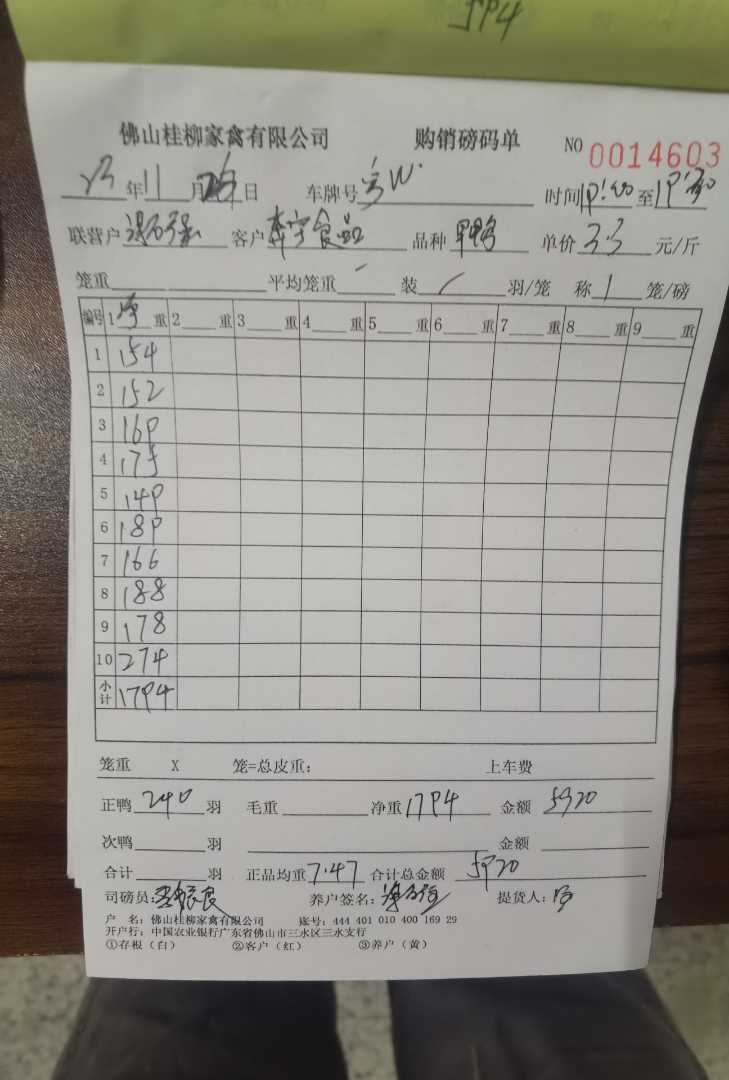 佛山桂柳家禽有限公司 购销磅码单 NO 0014603
23年11月日 车牌号 时间19:00至19:30
联营户 客户 食品 品种 旱鸭 单价 3.3 元/斤
笼重 平均笼重 - 装 / 羽/笼 称 1 笼/磅
编号 1净重 2重 3重 4重 5重 6重 7重 8重 9重
1 154
2 152
3 169
4 175
5 149
6 189
7 166
8 188
9 178
10 274
小计 1794
笼重 X 笼=总皮重: 上车费
正鸭 240 羽 毛重 净重 1794 金额 5920
次鸭 羽 金额
合计 羽 正品均重 7.47 合计总金额 5920
司磅员: 养户签名: 提货人:
户 名: 佛山桂柳家禽有限公司 账号: 444 401 010 400 169 29
开户行: 中国农业银行广东省佛山市三水区三水支行
①存根(白) ②客户(红) ③养户(黄)